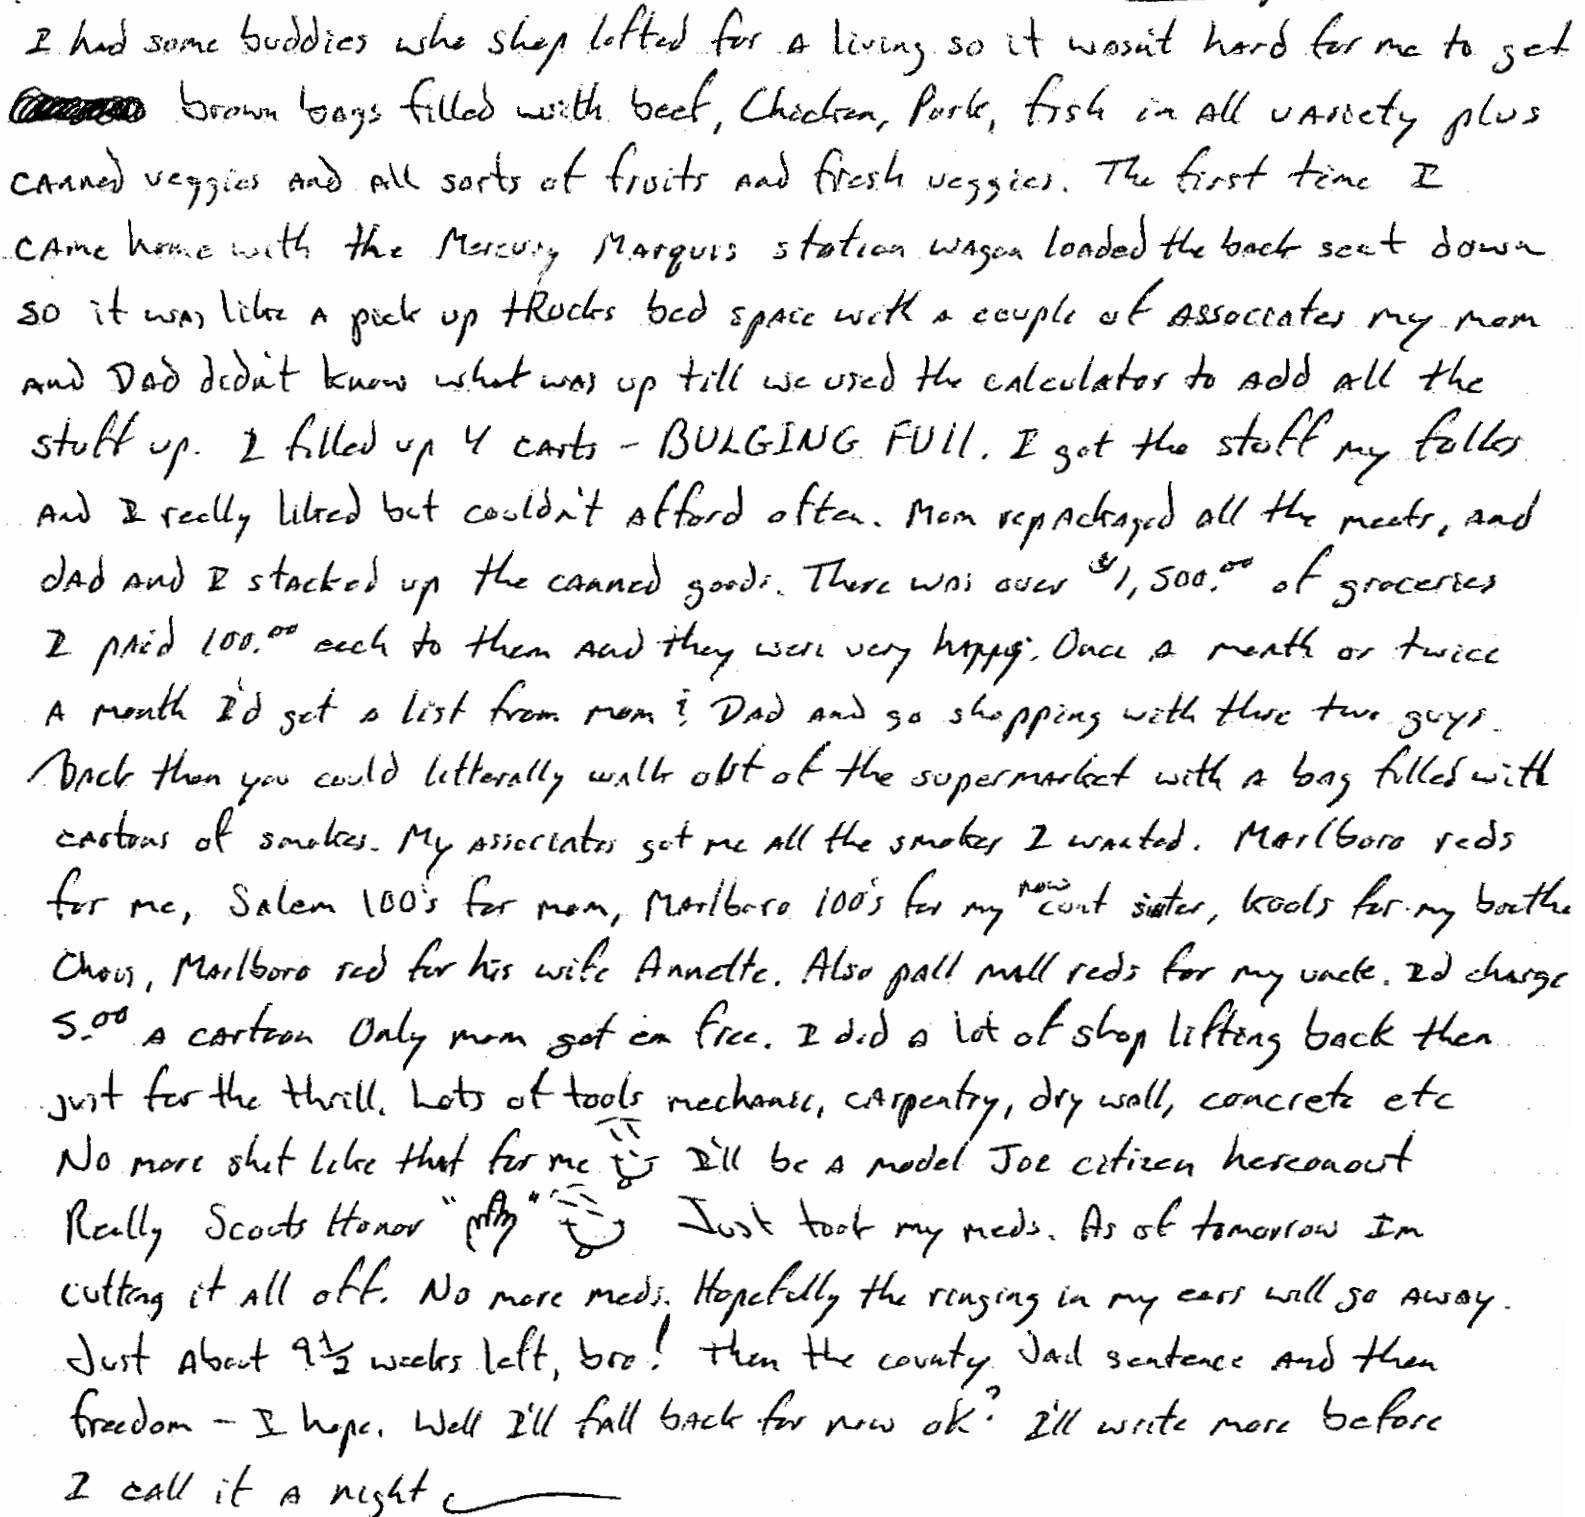 I had some buddies who shop lofted for a living so it wasn't hard for me to get
brown bags filled with beef, Chicken, Pork, fish in all variety plus
canned veggies and all sorts of fruits and fresh veggies. The first time I
came home with the Mercury Marquis station wagon loaded the back seat down
so it was like a pick up trucks bed space with a couple of associates my mom
and Dad didn't know what was up till we used the calculator to add all the
stuff up. I filled up 4 carts - BULGING FULL. I got the stuff my folks
and I really liked but couldn't afford often. Mom repackaged all the meets, and
dad and I stacked up the canned goods. There was over $1,500.00 of groceries
I paid 100.00 each to them and they were very happy. Once a month or twice
a month I'd get a list from mom & Dad and go shopping with these two guys.
Back then you could litterally walk out of the supermarket with a bag filled with
cartons of smokes. My associates got me all the smokes I wanted. Marlboro reds
for me, Salem 100's for mom, Marlboro 100's for my now cunt sister, Kools for my brothe
Chris, Marlboro red for his wife Annette. Also pall mall reds for my uncle. I'd charge
5.00 a cartoon Only mom got em free. I did a lot of shop lifting back then
just for the thrill. Lots of tools mechanic, carpentry, dry wall, concrete etc
No more shit like that for me I'll be a model Joe citizen hereonout
Really Scouts Honor " " Just took my meds. As of tomorrow Im
cutting it all off. No more meds. Hopefully the ringing in my ears will go away.
Just about 9 1/2 weeks left, bro! Then the county Jail sentence and then
freedom - I hope. Well I'll fall back for now ok? I'll write more before
I call it a night